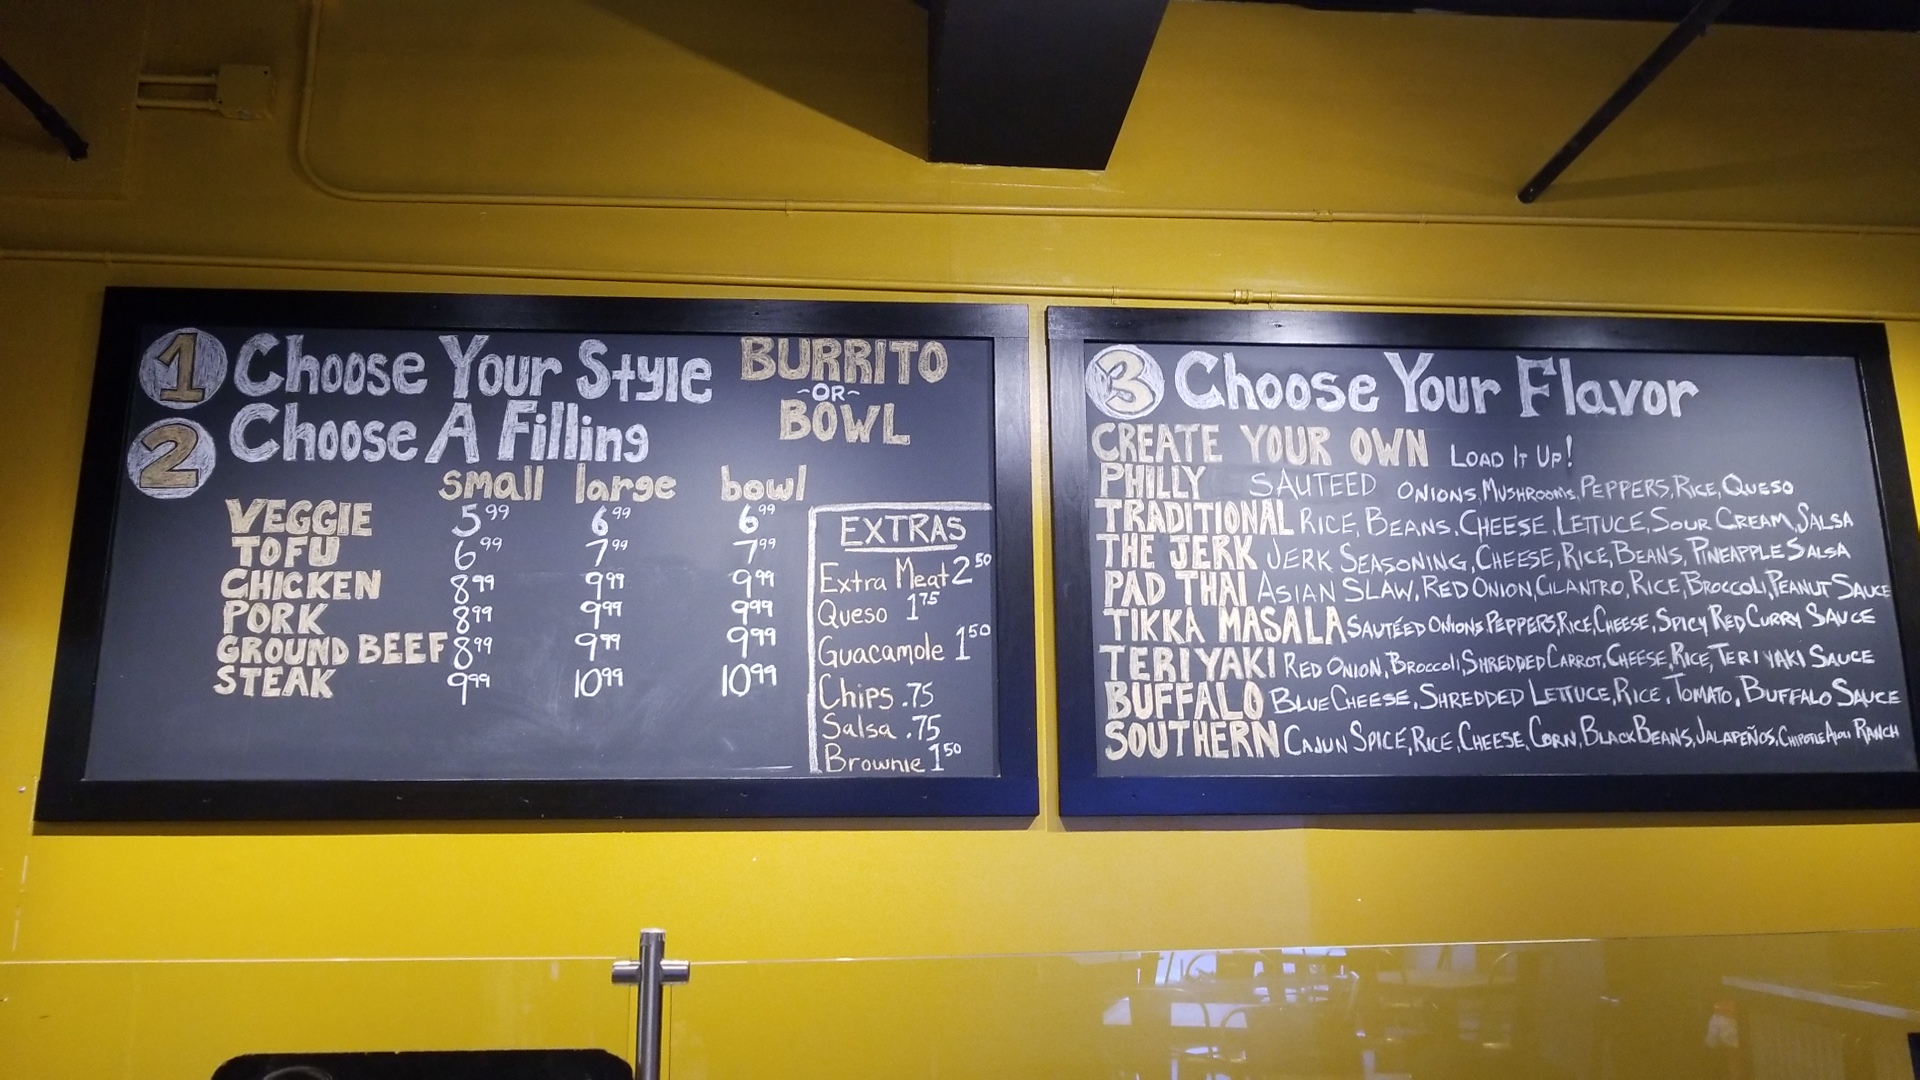 1 Choose Your Style BURRITO
~OR~
2 Choose A Filling BOWL
small large bowl
VEGGIE 5.99 6.99 6.99
TOFU 6.99 7.99 7.99
CHICKEN 8.99 9.99 9.99
PORK 8.99 9.99 9.99
GROUND BEEF 8.99 9.99 9.99
STEAK 9.99 10.99 10.99
EXTRAS
Extra Meat 2.50
Queso 1.75
Guacamole 1.50
Chips .75
Salsa .75
Brownie 1.50
3 Choose Your Flavor
CREATE YOUR OWN LOAD IT UP!
PHILLY SAUTEED ONIONS, MUSHROOMS, PEPPERS, RICE, QUESO
TRADITIONAL RICE, BEANS, CHEESE, LETTUCE, SOUR CREAM, SALSA
THE JERK JERK SEASONING, CHEESE, RICE, BEANS, PINEAPPLE SALSA
PAD THAI ASIAN SLAW, RED ONION, CILANTRO, RICE, BROCCOLI, PEANUT SAUCE
TIKKA MASALA SAUTÉED ONIONS, PEPPERS, RICE, CHEESE, SPICY RED CURRY SAUCE
TERIYAKI RED ONION, BROCCOLI, SHREDDED CARROT, CHEESE, RICE, TERIYAKI SAUCE
BUFFALO BLUE CHEESE, SHREDDED LETTUCE, RICE, TOMATO, BUFFALO SAUCE
SOUTHERN CAJUN SPICE, RICE, CHEESE, CORN, BLACK BEANS, JALAPEÑOS, CHIPOTLE AIOLI RANCH